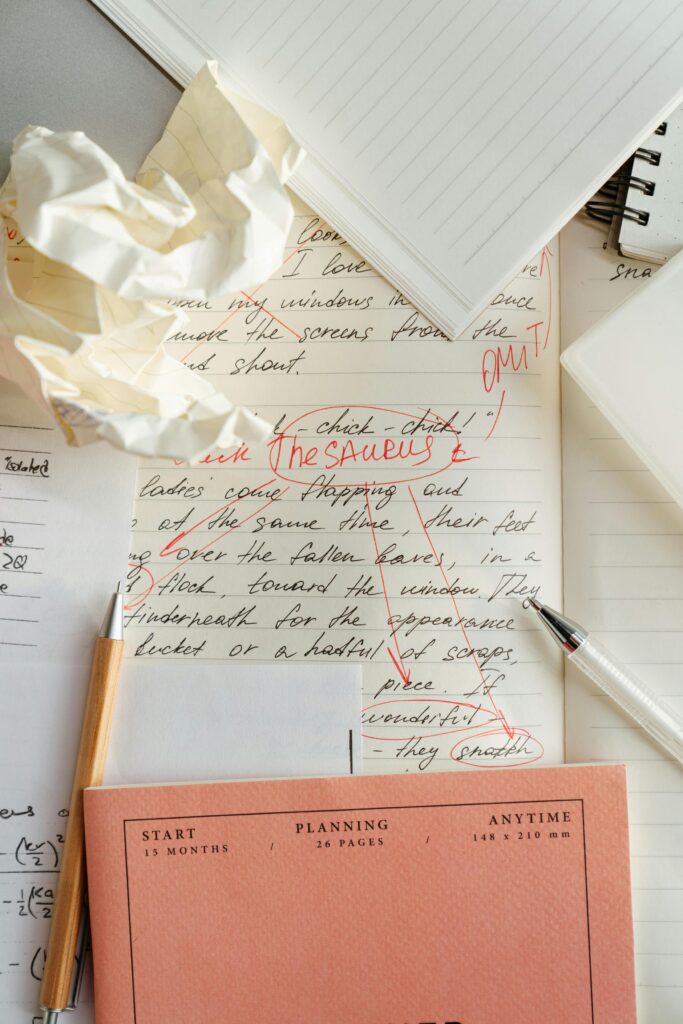 look
I love
my windows in
once
move the screens from the
shout.
OMIT
- chick - chick! "
THESAURUS
ladies' come flapping and
at the same time, their feet
isolated
over the fallen leaves, in a
2Q
flock, toward the window. They
underneath for the appearance
bucket or a hatful of scraps,
piece. If
wonderful -
- they snatch
START PLANNING ANYTIME
15 MONTHS / 26 PAGES / 148 x 210 mm